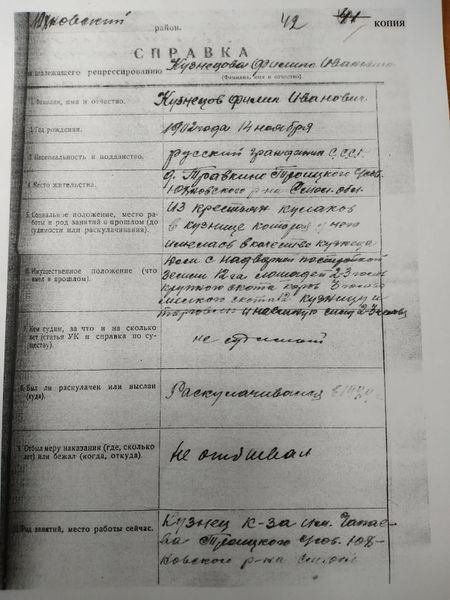 район.
42 41 КОПИЯ
СПРАВКА
на подлежащего репрессированию Кузнецова Филипа Ивановича
(Фамилия, имя и отчество)
1. Фамилия, имя и отчество. Кузнецов Филип Иванович
2. Год рождения. 1902 года 14 ноября
3. Национальность и подданство. русский гражданин СССР
4. Место жительства. д. Травкино Троицкого с/сов.
Юхновского р-на Смол. обл.
5. Социальное положение, место рабо-
ты и род занятий в прошлом (до
судимости или раскулачивания). Из крестьян кулаков
в кузнице которая у него
имелась в качестве кузнеца
6. Имущественное положение (что
имел в прошлом). Дом с надворной постройкой
земли 12 га лошадей 2-3 голов
крупного скота коров 3 головы
мелкого скота 12 кузницу и
и наемную силу 2 человека
7. Кем судим, за что и на сколько
лет (статья УК и справка по су-
ществу). не судимый
8. Был ли раскулачен или выслан
(куда). Раскулачивался в
9. Отбыл меру наказания (где, сколько
лет) или бежал (когда, откуда). Не отбывал
10. Род занятий, место работы сейчас. Кузнец к-за им. Чапае-
ва Троицкого с/сов. Юх-
новского р-на Смол.